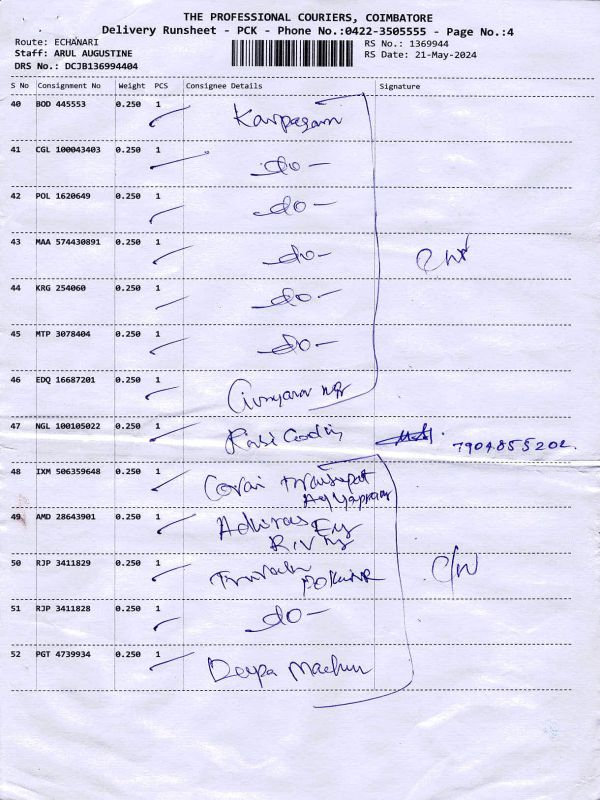 THE PROFESSIONAL COURIERS, COIMBATORE
Delivery Runsheet - PCK - Phone No.:0422-3505555 - Page No.:4
Route: ECHANARI
Staff: ARUL AUGUSTINE
DRS No.: DCJB136994404
RS No.: 1369944
RS Date: 21-May-2024
S No Consignment No Weight PCS Consignee Details Signature
40 BOD 445553 0.250 1 Karpagam
41 CGL 100043403 0.250 1 -do-
42 POL 1620649 0.250 1 -do-
43 MAA 574430891 0.250 1 -do-
44 KRG 254060 0.250 1 -do-
45 MTP 3078404 0.250 1 -do-
46 EDQ 16687201 0.250 1
47 NGL 100105022 0.250 1 7904855202.
48 IXM 506359648 0.250 1
49 AMD 28643901 0.250 1
50 RJP 3411829 0.250 1
51 RJP 3411828 0.250 1 -do-
52 PGT 4739934 0.250 1 Deepa